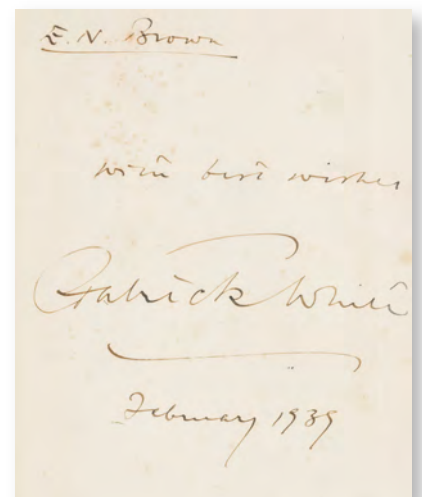 E. N. Brown
with best wishes
Patrick White
February 1939